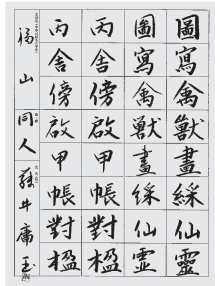 圖寫禽獸畫綵仙靈
圖寫禽獸畫綵仙靈
丙舍傍啟甲帳對楹
丙舍傍啟甲帳對楹
福山
同人